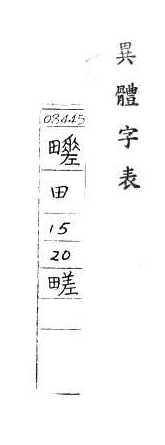 異體字表
08445
田
15
20
㽨